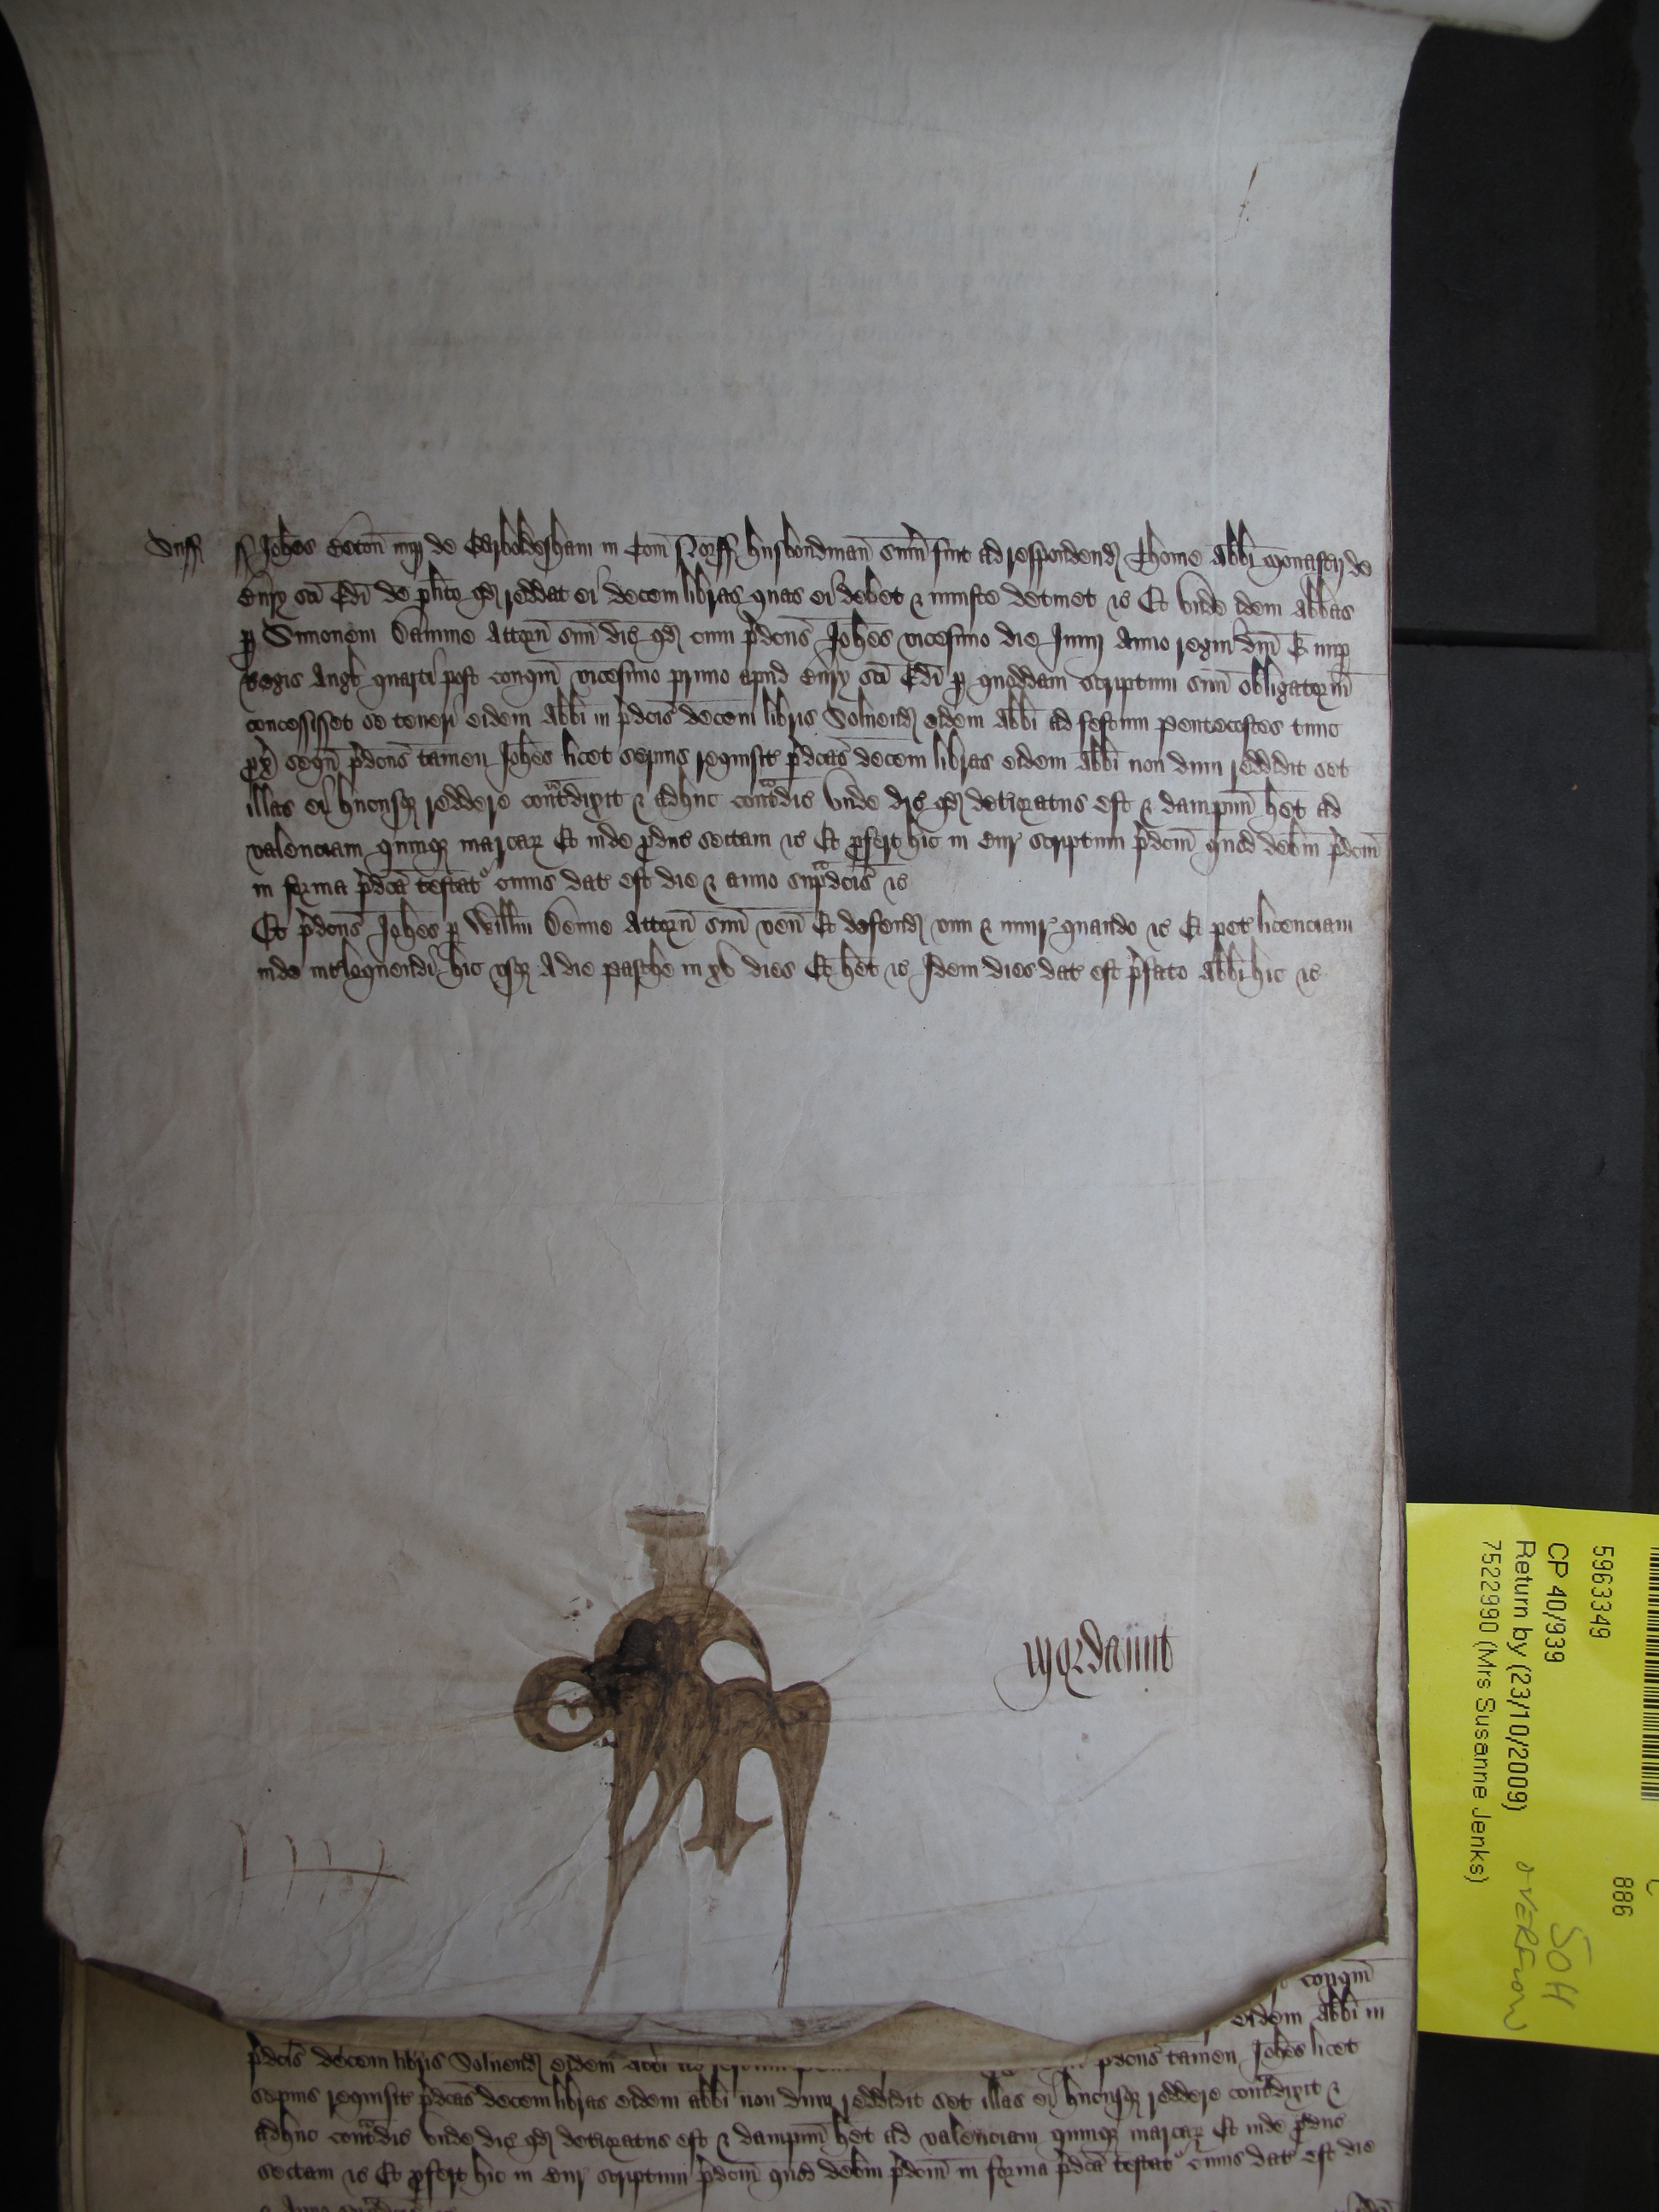 Suff
ss Joħes Coton nup de Garboldesham in Com̄ Norff husbondman sum̄ fuit ad respondend Thome Abbi Monasterij de
Bury sc̄i Edi de plito qd reddat ei decem libras quas ei debet & iniuste detinet ⁊c Et unde idem Abbas
p Simonem Damme Attorn̄ suū dic qd cum p̄dcus Joħes vicesimo die Junij Anno regni dn̄i E nup
Regis Angł quarti post conqm̄ vicesimo primo apud Bury sc̄i Edi p quoddam scriptum suū obligatoriū
concessisset se teneri eidem Abbi in p̄dcis decem libris Solvend eidem Abbi ad festum Pentecostes tunc
px̄ sequn̄ p̄dcus tamen Joħes licet sepius requisit p̄dcas decem libras eidem Abbi non dum reddidit set
illas ei hucusq reddere contͣdixit & adhuc contͣdic unde dic qd deterioratus est & dampnū het ad
valenciam quinq marcar Et inde pduc sectam ⁊c Et pfert hic in Cur scriptum p̄dcm̄ quod debm p̄dcm̄
in forma p̄dca testatͬ cuius dat est die & anno supͣdcis ⁊c
Et p̄dcus Joħes p Willm Denne Attorn̄ suū ven̄ Et defend vim & iniur quando ⁊c Et pet licenciam
inde intloquendi hic usq A die pasche in xv dies Et het ⁊c Idem dies dat est p̄fato Abbi hic ⁊c
Mordaunt
conqm̄
eidem Abbi in
p̄dcis decem libris Solvend eidem Abbi p̄dcus tamen Joħes licet
sepius requisit p̄dcas decem libras eidem Abbi non dum reddidit set illas ei hucusq reddere contͣdixit &
adhuc contͣdic unde dic qd deterioratus est & dampnū het ad valenciam quinq marcar Et inde pduc
sectam ⁊c Et pfert hic in Cur scriptum p̄dcm̄ quod debm p̄dcm̄ in forma p̄dca testatͬ cuius dat est die
5963349
886
CP 40/939
Return by (23/10/2009)
7522990 (Mrs Susanne Jenks)
SOH
OVERFLOW